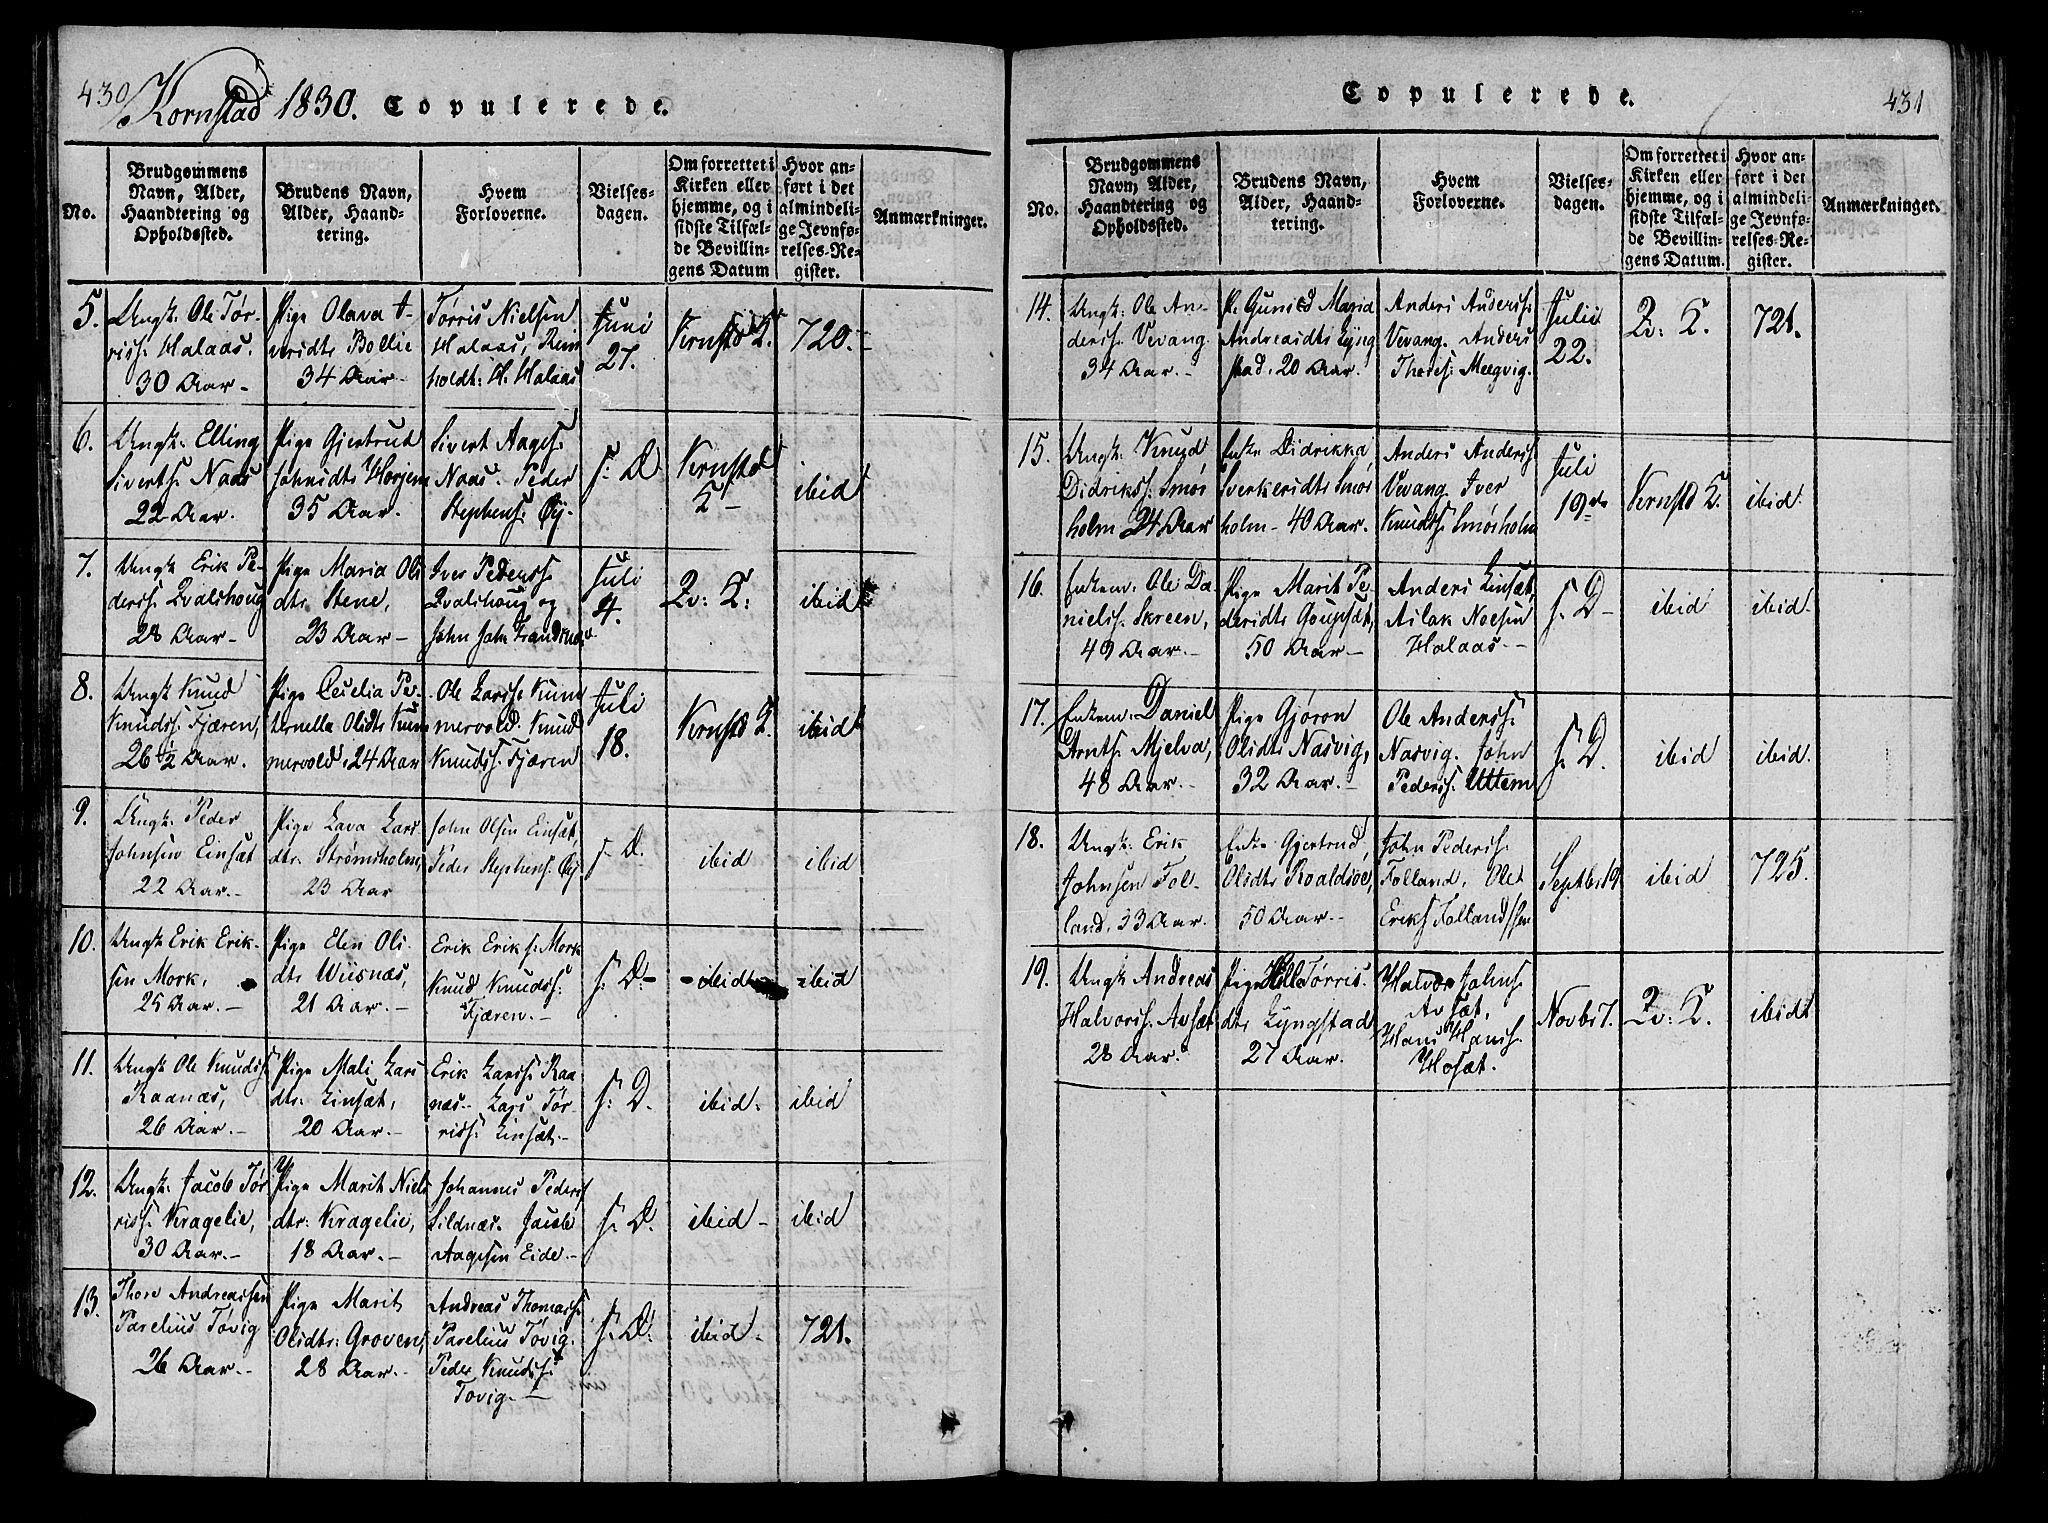 430 Kornstad 1830. Copulerede.
No.
Brudgommens
Navn, Alder,
Haandtering og
Opholdssted.
Brudens Navn,
Alder, Haand-
tering.
Hvem
Forloverne.
Vielses-
dagen.
Om forrettet i
Kirken eller
hjemme, og i
sidste Tilfæl-
de Bevillin-
gens Datum
Hvor an-
ført i det
almindeli-
ge Jevnfø-
relses-Re-
gister.
Anmærkninger.
5.
Ungk: Ole Tør-
riss: Halaas.
30 Aar -
Pige Olava I-
versdtr Bollie
34 Aar -
Tørris Nielsen
Halaas, Rein
holdt: H: Halaas
Juni
27.
Kernstd K.
720.-
6.
Ungk: Elling
Siverts: Naas
22 Aar.
Pige Gjertrud
Johnsdtr Hosjem
35 Aar.
Sivert Aages:
Naas. Peder
Stephens: Øy.
s: D
Kernstd
K -
ibid
7.
Ungk Erik Pe-
derss: Qvalshoug
28 Aar -
Pige Maria Ols
dtr Stene,
23 Aar -
Iver Pederss:
Qvalshoug og
John John
Juli
4.
Qv: K:
ibid
8.
Ungk Knud
Knudss: Fjæren,
26 1/2 Aar.
Pige Cecelia Pe-
ternella Olsdtr Kun
mervold, 24 Aar
Ole Larss: Kum
mervold. Knud
Knudss: Fjæren
Juli
18.
Kernstd K.
ibid
9.
Ungk: Peder
Johnsen Einsæt
22 Aar. -
Pige Lava Lars
dtr: Strømsholm,
23 Aar
John Olsen Einsæt,
Peder Stephens: Øy.
s: D.
ibid
ibid
10.
Ungk Erik Erik-
sen Mork,
25 Aar -
Pige Elen Ols-
dtr Wiisnæs,
21 Aar. -
Erik Eriks: Mork
Knud Knudss:
Fjæren. -
s: D -
- ibid
- ibid
11.
Ungk Ole Knudss:
Raanæs,
26 Aar. -
Pige Mali Lars
dtr: Linsæt,
20 Aar. -
Erik Larss: Raa-
næs. Lars Tør-
riss: Linsæt. -
s: D.
ibid.
ibid
12.
Ungk: Jacob Tør
riss: Kragelie,
30 Aar. -
Pige Marit Niels
dtr: Kragelie,
18 Aar. -
Johannes Pederss
Sildnæs. Jacob
Aagesen Eide. -
s. D.
ibid -
ibid
13.
Thore Andreassen
Parelius Tøvig
26 Aar. -
Pige Marit
Olsdtr: Groven,
28 Aar. -
Andreas Thomass:
Parelius Tøvig.
Peder Knudss:
Tøvig. -
s: D.
ibid -
721.
Copulerede.
431
No.
Brudgommens
Navn, Alder,
Haandtering og
Opholdssted.
Brudens Navn,
Alder, Haand-
tering.
Hvem
Forloverne.
Vielses-
dagen.
Om forrettet i
Kirken eller
hjemme, og i
sidste Tilfæl-
de Bevillin-
gens Datum.
Hvor an-
ført i det
almindeli-
ge Jevnfø-
relses-Re-
gister.
Anmærkninger.
14.
Ungk: Ole An-
derss: Vevang.
34 Aar. -
P. Gunild Maria
Andreasdtr Lyng
stad, 20 Aar.
Anders Anderss:
Vevang. Anders
Thores: Meegvig.
Julii
22.
Qv: K.
721.
15.
Ungk: Knud
Didrikss: Smør
holm 24 Aar
Enke Didrikka
Sverkersdtr Smør
holm - 40 Aar.
Anders Anderss
Vevang. Iver
Knudss Smørholm
Juli
19de
Kernstd K.
ibid.
16.
Enkem: Ole Da-
nielss: Skreen,
49 Aar. -
Pige Marit Pe-
dersdtr Goupsæt,
50 Aar -
Anders Linsæt,
Aslak Noesen
Halaas. -
s. D -
ibid
ibid.
17.
Enkem: Daniel
Arnts: Mjelva,
48 Aar. -
Pige Gjøron
Olsdtr Nasvig,
32 Aar. -
Ole Anderss:
Nasvig. John
Pederss: Uttem
s. D.
ibid
ibid.
18.
Ungk: Erik
Johnsen Fol-
land, 33 Aar.
Enke Gjertrud
Olsdtr Roaldsøe,
50 Aar. -
John Pederss:
Folland, Ole
Eriks Follandssen
Septbr 19
ibid
725.
19.
Ungk Andreas
Halvorss: Avsæt
28 Aar.
Pige Tørris-
dtr Lyngstad,
27 Aar.
Halvor Johns:
Avsæt,
Hans Hanss:
Hosæt.
Novbr 7.
Qv: K.
ibid